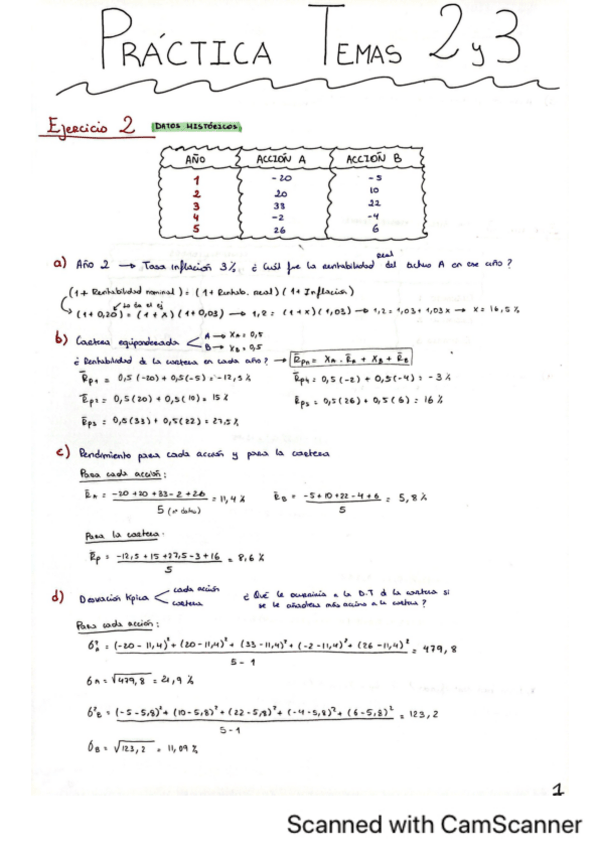 PRÁCTICA TEMAS 2 y 3
Ejercicio 2 DATOS HISTÓRICOS
AÑO ACCIÓN A ACCIÓN B
1 -20 -5
2 20 10
3 33 22
4 -2 -4
5 26 6
real
a) Año 2 → Tasa inflación 3% ¿Cuál fue la rentabilidad del activo A en ese año?
(1 + Rentabilidad nominal) = (1 + Rentab. real) (1 + Inflación)
↳ (1 + 0,20) = (1 + x) (1 + 0,03) → 1,2 = (1 + x) (1,03) → 1,2 = 1,03 + 1,03x → x = 16,5%
b) Cartera equiponderada A → XA = 0,5
B → XB = 0,5
¿Rentabilidad de la cartera en cada año? → R̄pn = XA · R̄A + XB + R̄B
R̄p1 = 0,5 (-20) + 0,5 (-5) = -12,5% R̄p4 = 0,5 (-2) + 0,5 (-4) = -3%
R̄p2 = 0,5 (20) + 0,5 (10) = 15% R̄p5 = 0,5 (26) + 0,5 (6) = 16%
R̄p3 = 0,5 (33) + 0,5 (22) = 27,5%
c) Rendimiento para cada acción y para la cartera
Para cada acción:
R̄A = -20 + 20 + 33 - 2 + 26 / 5 (nº datos) = 11,4% R̄B = -5 + 10 + 22 - 4 + 6 / 5 = 5,8%
Para la cartera:
R̄p = -12,5 + 15 + 27,5 - 3 + 16 / 5 = 8,6%
d) Desviación típica cada acción
cartera
¿Qué le ocurriría a la D.T de la cartera si
se le añadiera más activos a la cartera?
Para cada acción:
σ²A = (-20 - 11,4)² + (20 - 11,4)² + (33 - 11,4)² + (-2 - 11,4)² + (26 - 11,4)² / 5 - 1 = 479,8
σA = √479,8 = 21,9%
σ²B = (-5 - 5,8)² + (10 - 5,8)² + (22 - 5,8)² + (-4 - 5,8)² + (6 - 5,8)² / 5 - 1 = 123,2
σB = √123,2 = 11,09%
1
Scanned with CamScanner